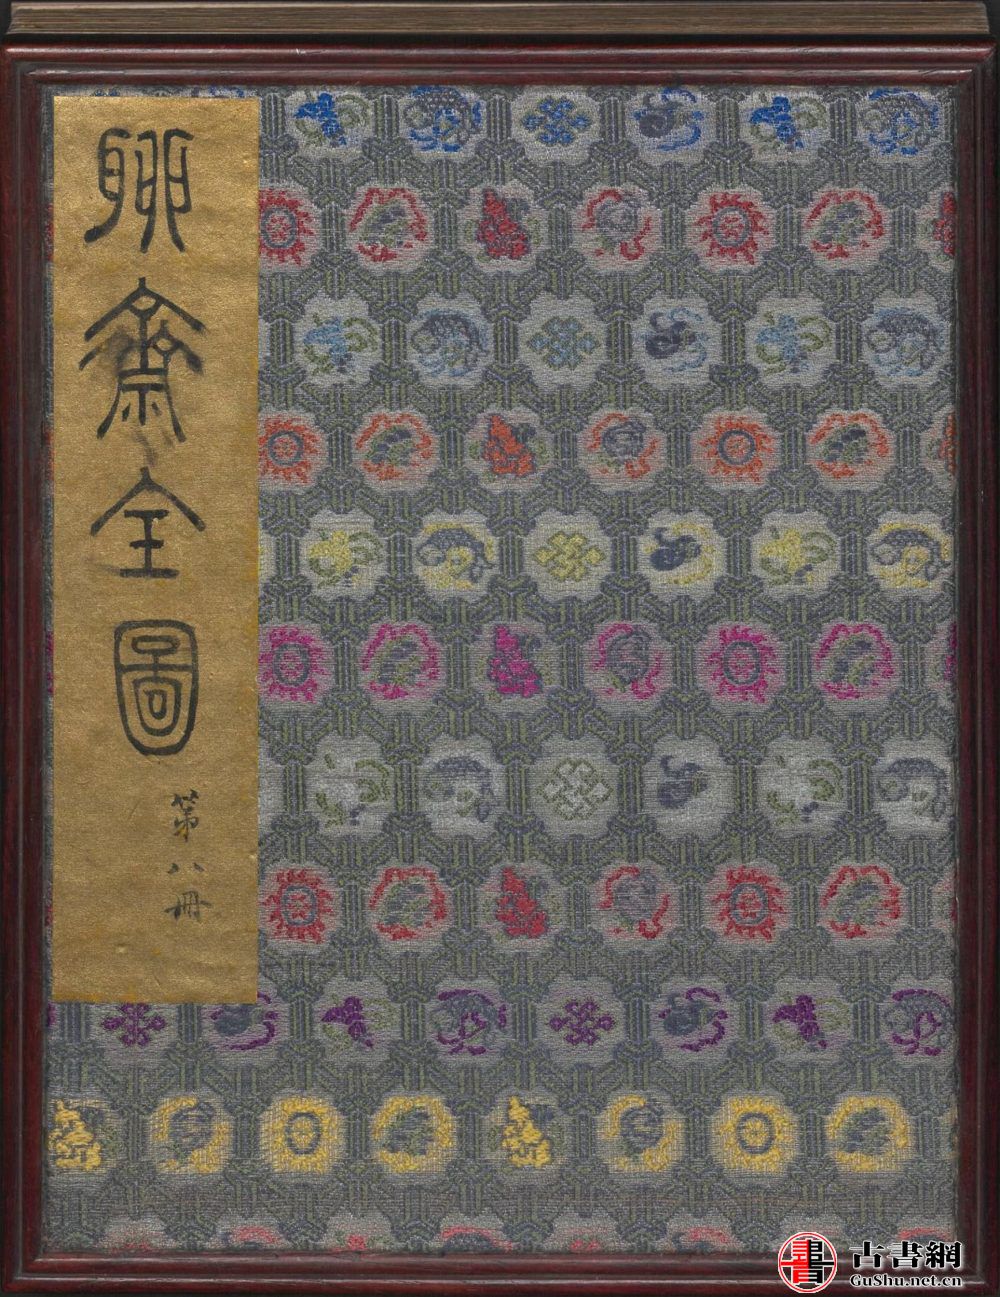 聊齋全圖
第八冊
書
古書網
GuShu.net.cn